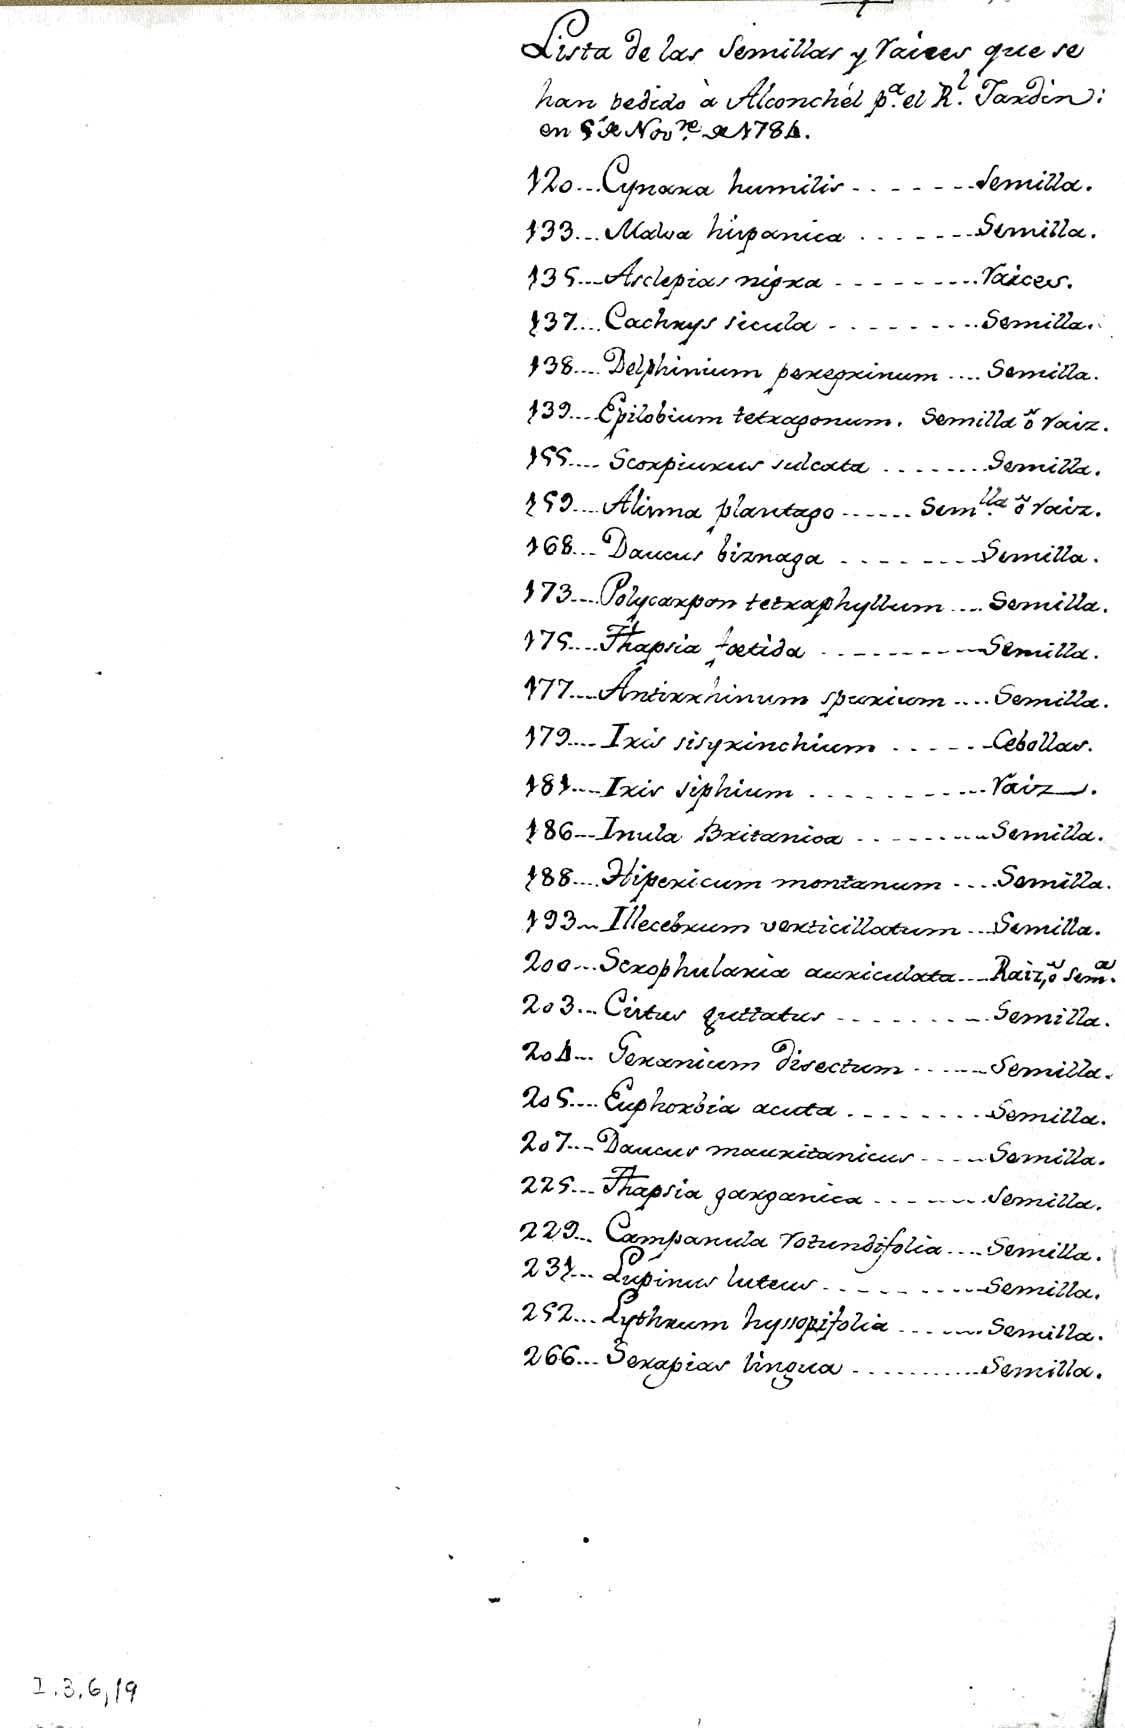 Lista de las Semillas y raices que se
han pedido à Alconchél p.a el R.l Jardin:
en 5 de Nov.re de 1784.
120... Cynara humilis - - - - - - - Semilla.
133... Malva hispanica . . . - - - - Semilla.
135.... Asclepias nigra - - - - - - - - - raices.
137.... Cachrys sicula - - - - - - - - - Semilla.
138.... Delphinium peregrinum .... Semilla.
139.... Epilobium tetragonum. Semilla ò raiz.
155.... Scorpiurus sulcata ........ Semilla.
159.... Alisma plantago ...... Sem.lla ò raiz.
168.... Daucus biznaga . . . - - - - - Semilla.
173.... Polycarpon tetraphyllum .... Semilla.
175.... Thapsia foetida - - - - - - - - - - Semilla.
177.... Antirrhinum spurium .... Semilla.
179.... Iris sisyrinchium . . . - - - Cebollas.
181.... Iris siphium . . . . . - - - - - raiz.
186... Inula Britanica - - - - - - - - - Semilla.
188.... Hipericum montanum - ... Semilla.
193... Illecebrum verticillatum ... Semilla.
200... Scrophularia auriculata .... Raiz, ò sem.as
203... Cistus guttatus - - - - - - - - - Semilla.
204... Geranium disectum - - - - - - Semilla.
205.... Euphorbia acuta . - - - - - - - - Semilla.
207... Daucus mauritanicus - - - - - Semilla.
225... Thapsia garganica - - - - - - - Semilla.
229... Campanula rotundifolia .... Semilla.
231... Lupinus luteus - - - - - - - - - - Semilla.
252... Lythrum hyssopifolia - - - - - - Semilla.
266... Serapias lingua . . . . . . . . . . . Semilla.
I.3.6,19